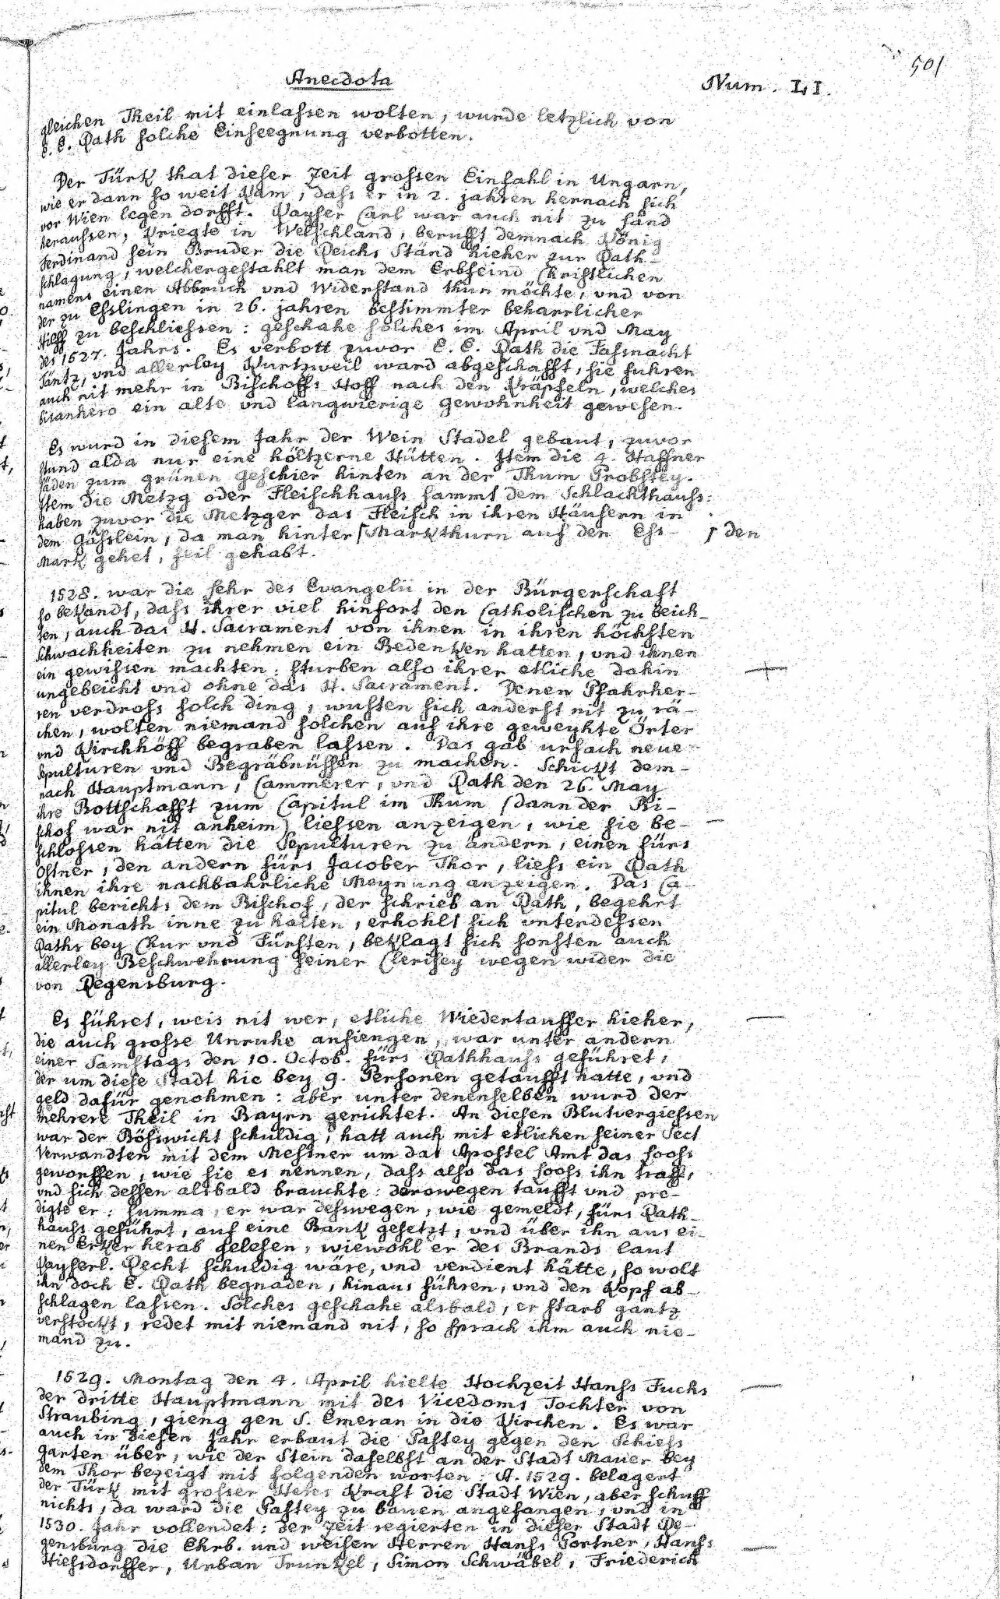 501
Anecdota Num. LI.
gleichen Theil mit einlassen wolten, wurde letzlich von
E. E. Rath solche Einseegnung verbotten.
Der Türk that dieser Zeit grossen Einfahl in Ungarn,
wie er dann so weit kam, dass er in 2. jahren hernach sich
vor Wien legen dorfft. Kayser Carl war auch nit zu händ
heraussen, kriegte in Welschland, berufft demnach König
Ferdinand sein Bruder die Reichs Ständ hieher zur Rath-
schlagung, welchergestahlt man dem Erbfeind Christlichen
namens einen Abbruch vnd Widerstand thun möchte, vnd von
der zu Esslingen in 26. jahren bestimmter beharrlicher
Hilff zu beschliessen: geschahe solches im April vnd May
des 1527. Jahrs. Es verbott zuvor E. E. Rath die Fassnacht
Täntz, vnd allerley Kurtzweil ward abgeschafft, sie fuhren
auch nit mehr in Bischoffs Hoff nach den Kräpfeln, welches
bisanhero ein alte vnd langwierige gewohnheit gewesen.
Es wurd in diesem Jahr der Wein Stadel gebaut, zuvor
stund alda nur eine höltzerne Hütten. Item die 4. Haffner
läden zum grünen geschier hinten an der Thum Probstey.
Item die Metzg oder Fleischhauss sammt dem Schlachthauss:
haben zuvor die Metzger das Fleisch in ihren Häusern in
dem Gässlein, da man hinter ſ Markthurn auf den Ess- ſ den
Mark gehet, feil gehabt.
1528. war die Lehr des Evangelii in der Bürgerschaft
so bekandt, dass ihrer viel hinfort den Catholischen zu beich-
ten, auch das H. Sacrament von ihnen in ihren höchsten
Schwachheiten zu nehmen ein Bedenken hatten, vnd ihnen
ein gewissen machten: sturben also ihrer etliche dahin
ungebeicht vnd ohne das H. Sacrament. Denen Pfahrher-
ren verdross solch ding, wusten sich anderst nit zu rä-
chen, wolten niemand solchen auf ihre geweyhte Örter
vnd Kirchhöff begraben lassen. Das gab ursach neue
Sepulturen vnd Begräbnüssen zu machen. Schickt dem-
nach Hauptmann, Cammerer, vnd Rath den 26. May
ihre Bottschafft zum Capitul im Thum (dann der Bi-
schof war nit anheim) liessen anzeigen, wie sie be-
schlossen hätten die Sepulturen zu ändern, einen fürs
Ostner, den andern fürs Jacober Thor, liess ein Rath
ihnen ihre nachbahrliche Meynung anzeigen. Das Ca-
pitul bericht, dem Bischof, der schrieb an Rath, begehrt
ein Monath inne zu halten, erhohlt sich unterdessen
Raths bey Chur vnd Fürsten, beklagt sich sonsten auch
allerley Beschwehrung seiner Clerisey wegen wider die
von Regensburg.
Es führet, weis nit wer, etliche Wiedertauffer hieher,
die auch grosse Unruhe anfiengen, war unter andern
einer Samstags den 10. Octob. fürs Rathhauss geführet,
der um diese Stadt hie bey 9. Personen getaufft hatte, vnd
geld dafür genohmen: aber unter denenselben wurd der
mehrere Theil in Bayrn gerichtet. An diesen Blutvergiessen
war der Bösswicht schuldig, hatt auch mit etlichen seiner Sect
Verwandten mit dem Messner um das Apostel Amt das Looss
geworffen, wie sie es nennen, dass also das Looss ihn traff,
vnd sich dessen alsbald brauchte: derowegen taufft vnd pre-
digte er: summa, er war desswegen, wie gemeldt, fürs Rath-
hauss geführt, auf eine Bank gesetzt, vnd über ihn aus ei-
nen Erker herab gelesen, wiewohl er des Brands laut
Kayserl. Recht schuldig wäre, vnd verdient hätte, so wolt
ihn doch E. Rath begnaden, hinaus führen, vnd den Kopf ab-
schlagen lassen. Solches geschahe alsbald, er starb gantz
verstockt, redet mit niemand nit, so sprach ihm auch nie-
mand zu.
1529. Montag den 4. April hielte Hochzeit Hanss Fuchs
der dritte Hauptmann mit des Vicedoms Tochter von
Straubing, gieng gen S. Emeran in die Kirchen. Es war
auch in diesen Jahr erbaut die Pastey gegen den Schiess
garten über, wie der Stein daselbst an der Stadt Mauer bey
dem Thor bezeigt mit folgenden worten: A. 1529. belagert
der Türk mit grosser Heres Kraft die Stadt Wien, aber schuff
nichts, da ward die Pastey zu bauen angefangen, vnd in
1530. Jahr vollendet: der Zeit regierten in dieser Stadt Re-
gensburg die Ehrb. und weisen Herren Hanss Portner, Hanss
Hiessdorffer, Urban Trunkel, Simon Schwäbel, Friederich